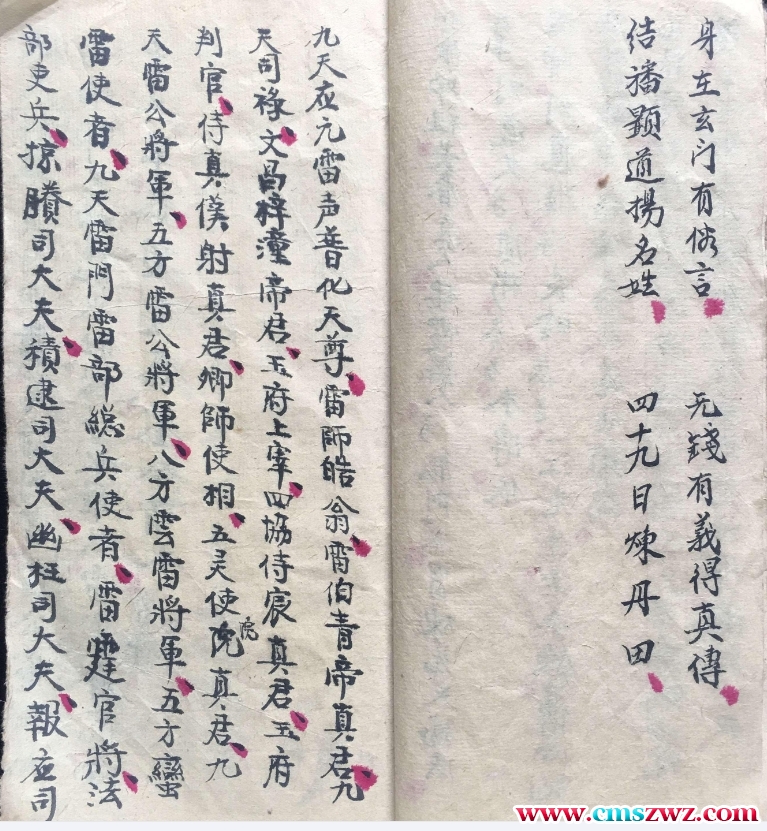 身在玄门有俗言 无錢有義得真傳
结旛顕道揚名姓 四十九日煉丹田
九天应元雷声普化天尊雷師皓翁雷伯青帝真君九
天司禄文昌梓潼帝君玉府上宰四協侍宸真君玉府
判官侍真僕射真君卿師使相五灵使院院真君九
天雷公將軍五方雷公將軍八方雲雷將軍五方蠻
雷使者九天雷門雷部総兵使者雷霆官將法
部吏兵掠賸司大夫積逮司大夫幽枉司大夫報应司
www.cmszwz.com